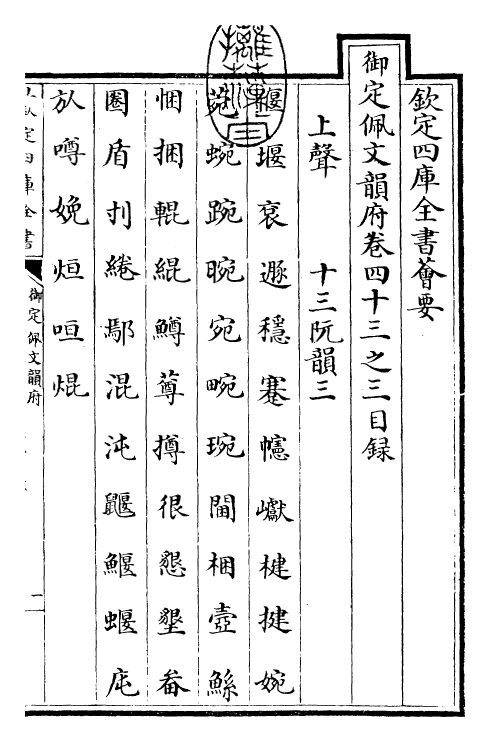 欽定四庫全書薈要
御定佩文韻府卷四十三之三目録
上聲 十三阮韻三
堰衮遯穩蹇幰巘楗揵婉
蜿踠晼宛畹琬閫梱壼鯀
悃捆輥緄鱒蓴撙很懇墾畚
圈盾刌綣鄢混沌鼴鰋蝘庉
㫃噂娩烜咺焜
御定佩文韻府